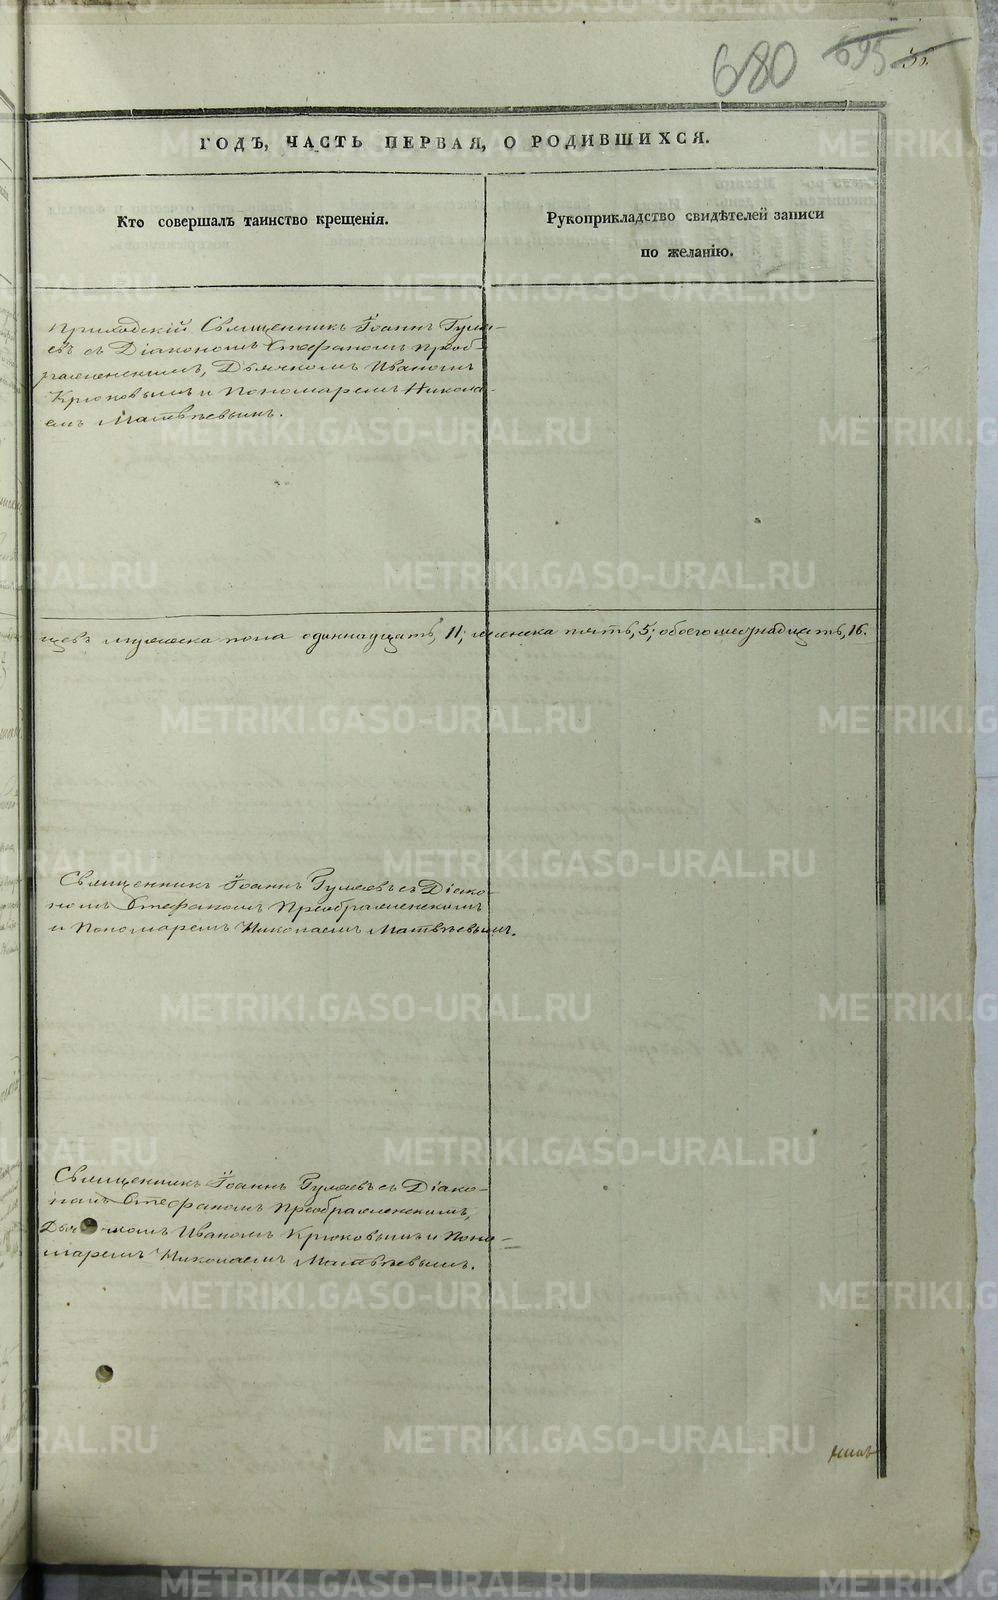 680 695
ГОДЪ, ЧАСТЬ ПЕРВАЯ, О РОДИВШИХСЯ.
Кто совершалъ таинство крещенія.
Рукоприкладство свидѣтелей записи
по желанію.
Приходскій Священникъ Іоаннъ Гуля-
евъ съ Діакономъ Стефаномъ Преоб-
раженскимъ, Дьячкомъ Иваномъ
Крюковымъ и Пономаремъ Никола-
емъ Матвѣевымъ.
щевъ мужеска пола одиннадцать, 11; женска пять, 5; обоего шестнадцать, 16.
Священникъ Іоаннъ Гуляевъ съ Діако-
номъ Стефаномъ Преображенскимъ
и Пономаремъ Николаемъ Матвѣевымъ.
Священникъ Іоаннъ Гуляевъ съ Діако-
номъ Стефаномъ Преображенскимъ,
Дьячкомъ Иваномъ Крюковымъ и Поно-
маремъ Николаемъ Матвѣевымъ.
METRIKI.GASO-URAL.RU